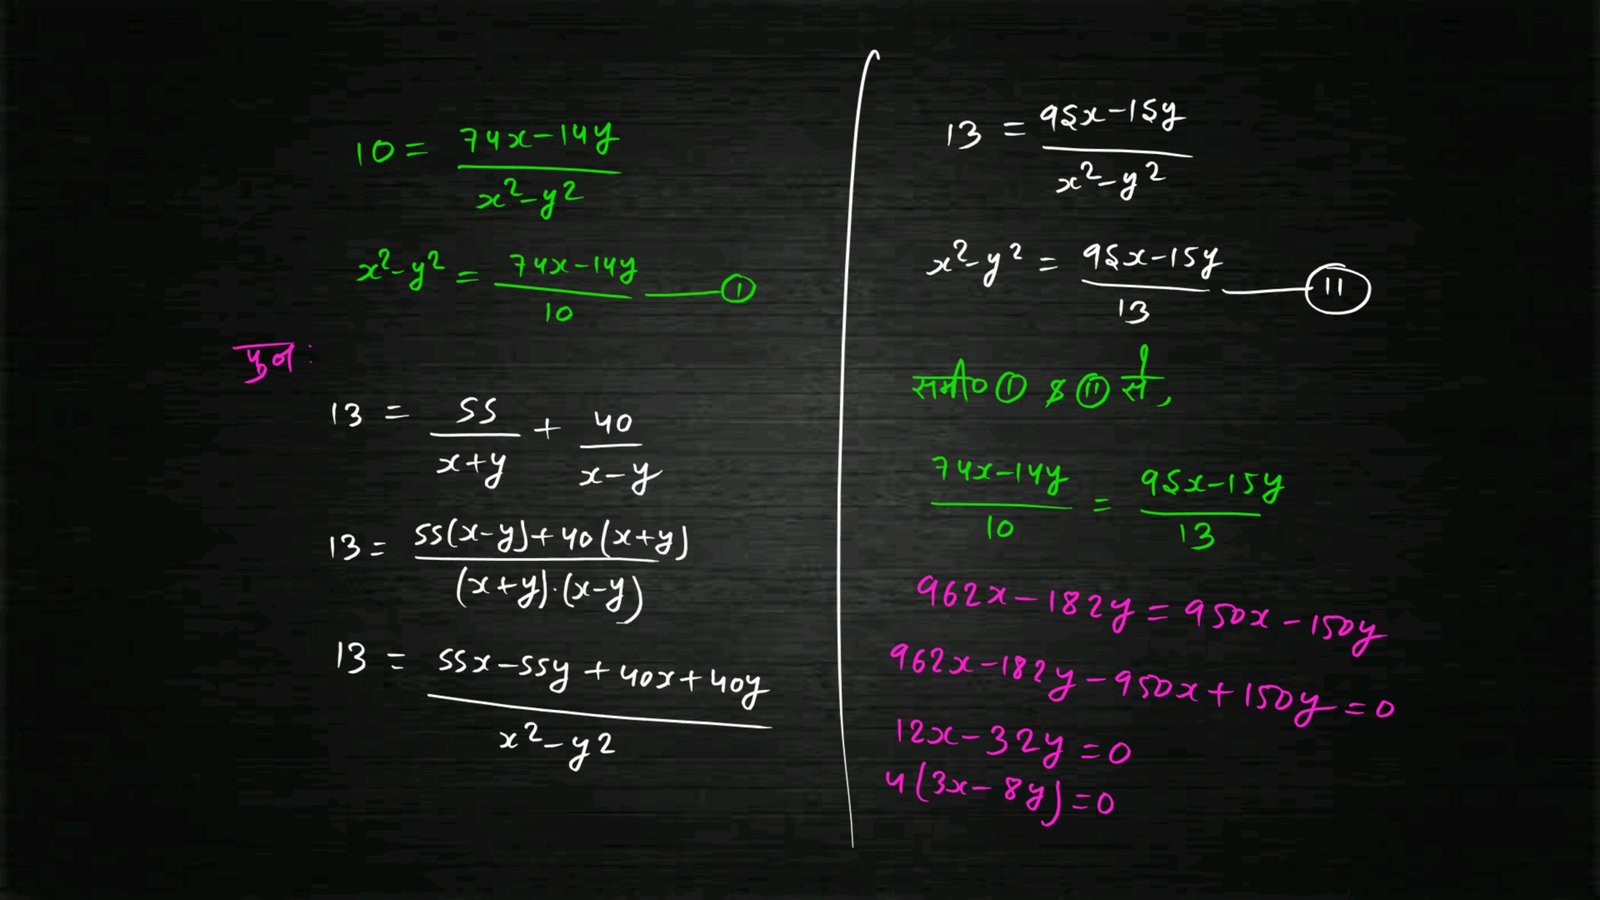 10 = (74x-14y)/(x²-y²)
x²-y² = (74x-14y)/10 — ①
पुनः
13 = 55/(x+y) + 40/(x-y)
13 = (55(x-y)+40(x+y))/((x+y)·(x-y))
13 = (55x-55y+40x+40y)/(x²-y²)
13 = (95x-15y)/(x²-y²)
x²-y² = (95x-15y)/13 — ⑪
समी० ① & ⑪ से,
(74x-14y)/10 = (95x-15y)/13
962x-182y = 950x-150y
962x-182y-950x+150y=0
12x-32y=0
4(3x-8y)=0